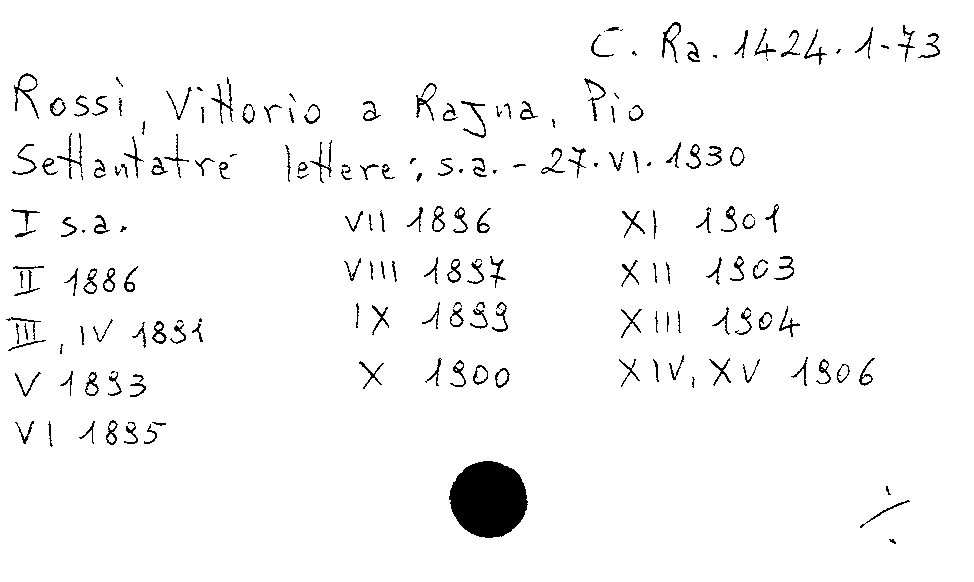 C. Ra. 1424. 1-73
Rossi, Vittorio a Rajna, Pio
Settantatré lettere; s.a. - 27. VI. 1930
I s.a.
II 1886
III, IV 1891
V 1893
VI 1895
VII 1896
VIII 1897
IX 1899
X 1900
XI 1901
XII 1903
XIII 1904
XIV, XV 1906
./.